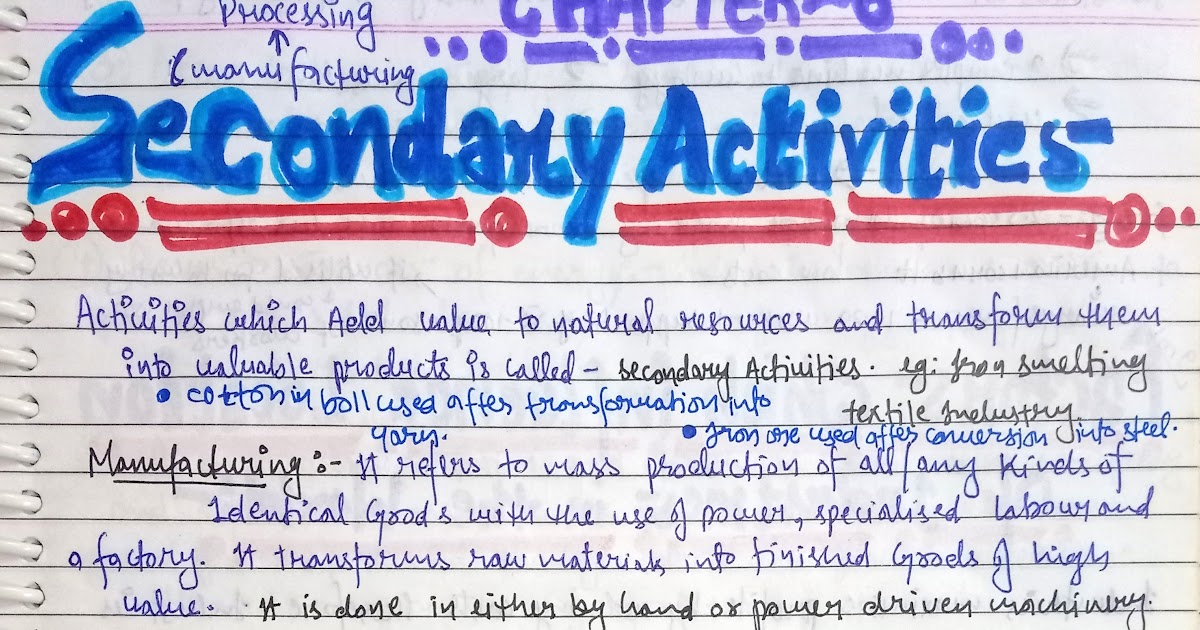 Processing
CHAPTER-6
↑
(manufacturing
Secondary Activities-
Activities which Add value to natural resources and transform them
into valuable products is called - secondary Activities. eg: Iron smelting
textile Industry.
• cotton in boll used after transformation into
yarn.
• Iron ore used after conversion into steel.
Manufacturing :- It refers to mass production of all/any Kinds of
Identical Goods with the use of power, specialised labour and
a factory. It transforms raw materials into finished Goods of high
value. It is done in either by hand or power driven machinery.